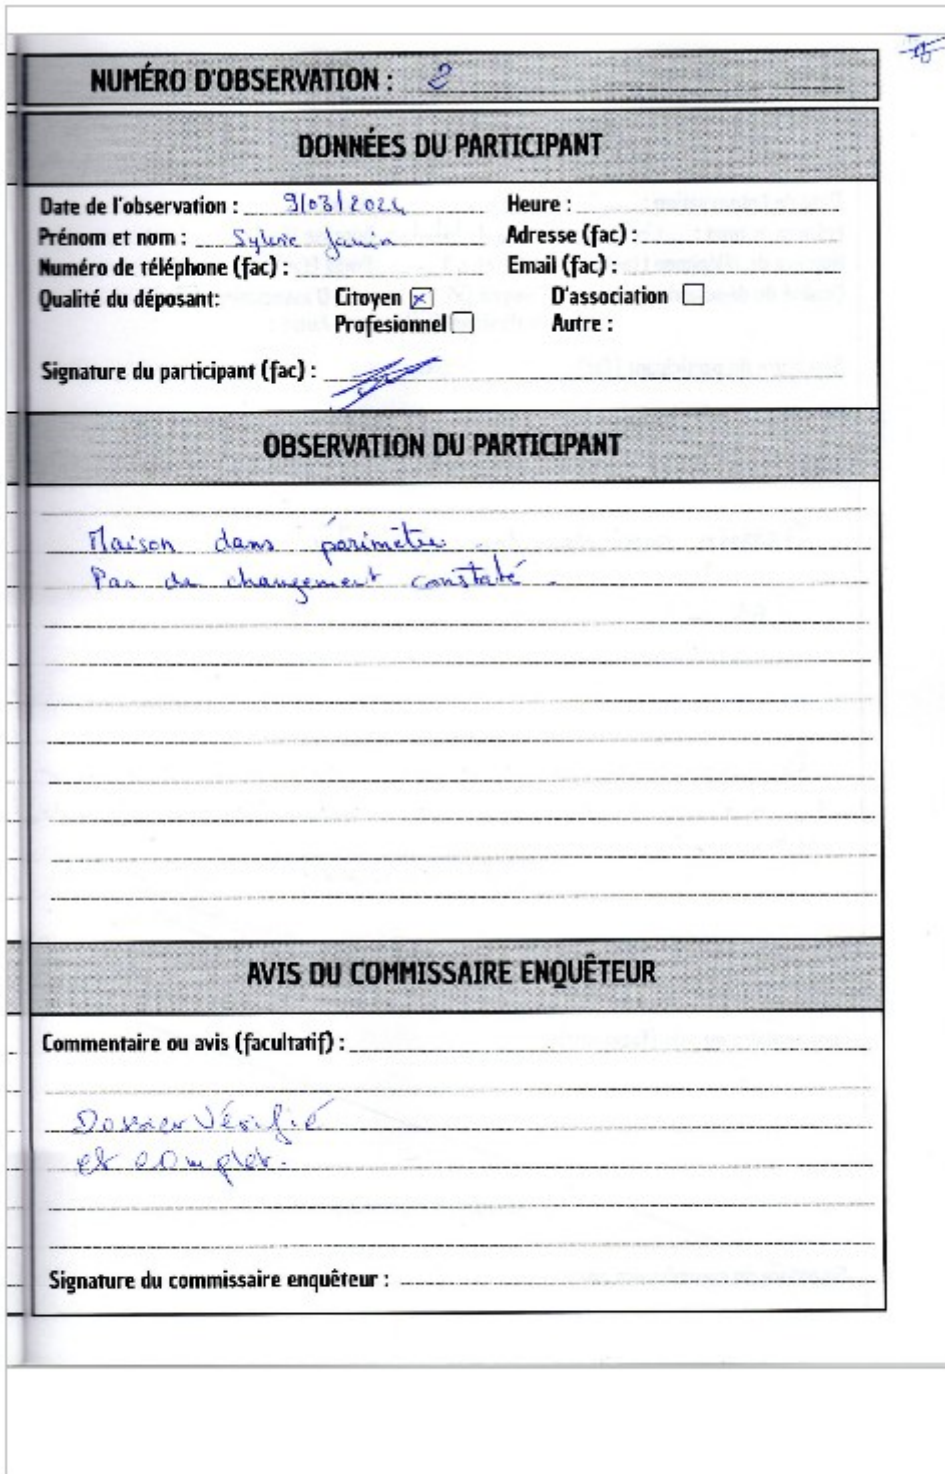 NUMÉRO D'OBSERVATION : 2
DONNÉES DU PARTICIPANT
Date de l'observation : 9/03/2024 Heure :
Prénom et nom : Sylvie Janin Adresse (fac) :
Numéro de téléphone (fac) : Email (fac) :
Qualité du déposant: Citoyen ☒ D'association ☐
Profesionnel ☐ Autre :
Signature du participant (fac) :
OBSERVATION DU PARTICIPANT
Maison dans périmètre.
Pas de changement constaté.
AVIS DU COMMISSAIRE ENQUÊTEUR
Commentaire ou avis (facultatif) :
Dossier Vérifié
et complet.
Signature du commissaire enquêteur :